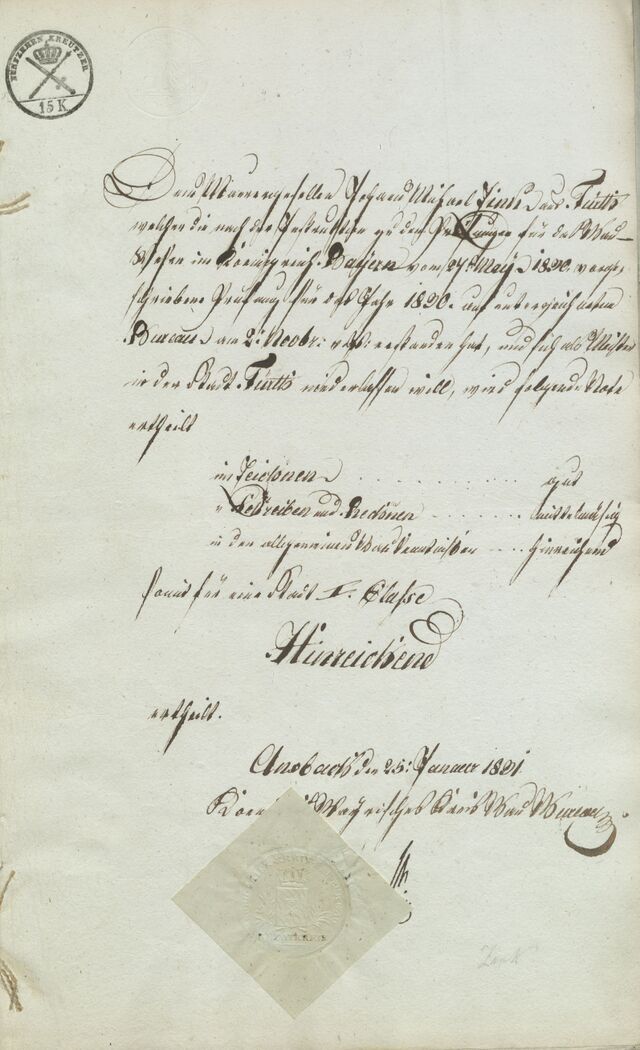 FÜNFZEHEN KREUTZER
15 K
Dem Maurergesellen Johann Michael Zink aus Fürth
welcher die nach der Instruktion zu den Prüfungen für das Bau-
Wesen im Koenigreich Bayern vom 27t May 1830. vorge-
schriebene Prüfung für das Jahr 1830. am unterzeichneten
Bureau am 2t Novbr: v. J. erstanden hat, und sich als Meister
in der Stadt Fürth niederlassen will, wird folgende Note
ertheilt
im Zeichnen . . . . . . . . . . . gut
" Schreiben und Rechnen . . . . . . . mittelmäsig
in den allgemeinen Baukenntnissen . . . . hinreichend
somit für eine Stadt I. Classe
Hinreichend
ertheilt.
Ansbach den 25t Januar 1831.
Koenigl Bayrisches Kreis Bau Bureau
REZATKREIS
Zink